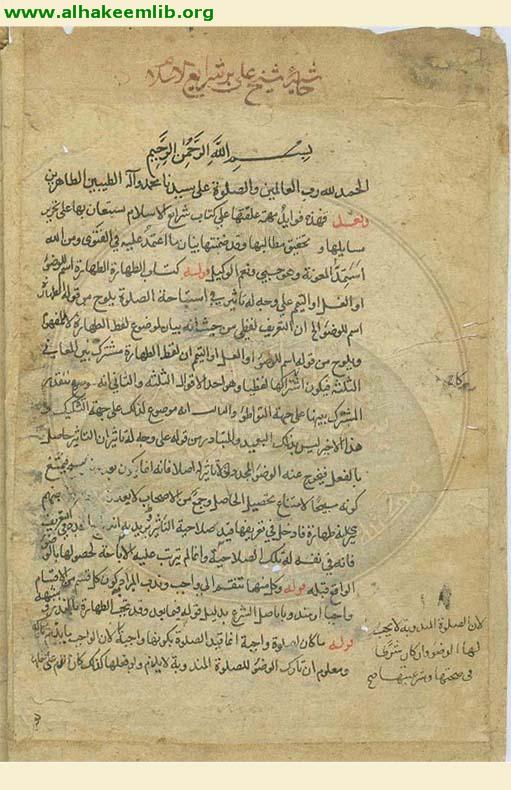 www.alhakeemlib.org
حاشية شيخ علي بر شرايع الاسلام
بسم الله الرحمن الرحيم
الحمد لله رب العالمين والصلوة على سيدنا محمد وآله الطيبين الطاهرين
وبعد فهذه فوايد مهمة علقتها على كتاب شرايع الاسلام يستعان بها على تحرير
مسايلها و تحقيق مطالبها وقد ضمنتها بيان ما اعتمد عليه في الفتوى ومن الله
استمد المعونة وهو حسبي ونعم الوكيل قوله كتاب الطهارة الطهارة اسم للوضوء
او الغسل او التيمم على وجه له تاثير في استباحة الصلوة يلوح من قوله الطهارة
اسم للوضوء الخ ان التعريف لفظي من حيث انه بيان لموضوع لفظ الطهارة
ويلوح من قوله اسم للوضوء او الغسل او التيمم ان لفظ الطهارة مشترك بين المعاني
الثلثة فيكون اشتراكها لفظيا وهو احد الاقوال الثلثة والثاني انه
المشترك بينها على جهة التواطؤ والثالث انه موضوع لذلك على جهة التشكيك و
هذا الاخير ليس بذلك البعيد والمتبادر من قوله على وجه له تاثير ان التاثير حاصل
بالفعل فيخرج عنه الوضوء المجدد لانه لا تاثير له اصلا فانه انما يكون
كونه مبيحا لامتناع تحصيل الحاصل وجمع من الاصحاب
طهارة فادخل في تعريفها قيد صلاحية التاثير
فانه في نفسه له تلك الصلاحية وانما لم يترتب عليه الاباحة لحصولها بالوضوء
الواقع قبله قوله وكل منها تنقسم الى واجب وندب المراد كون كل قسم من الاقسام
واجبا او مندوبا باصل الشرع بدليل قوله فيما بعد وقد تجب الطهارة بالنذر
قوله ما كان لصلوة واجبة انما قيد الصلوة بكونها واجبة لان الواجب
ومعلوم ان تارك الوضوء للصلوة المندوبة لا يذم
لان الصلوة المندوبة لا يجب
لها الوضوء وان كان شرطا
في صحتها وشرعيتها صح